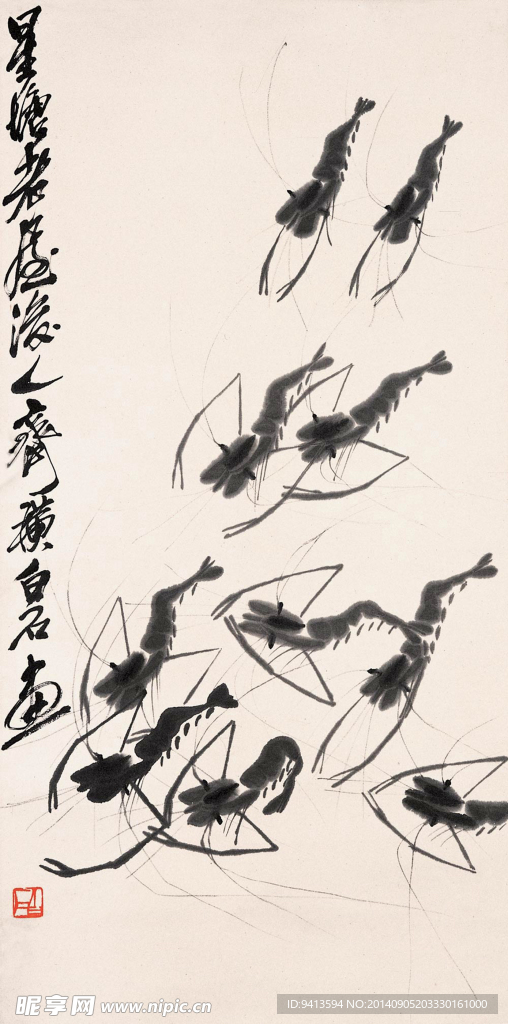 星塘老屋後人齊璜白石畫
昵享网 www.nipic.cn
ID:9413594 NO:20140905203330161000